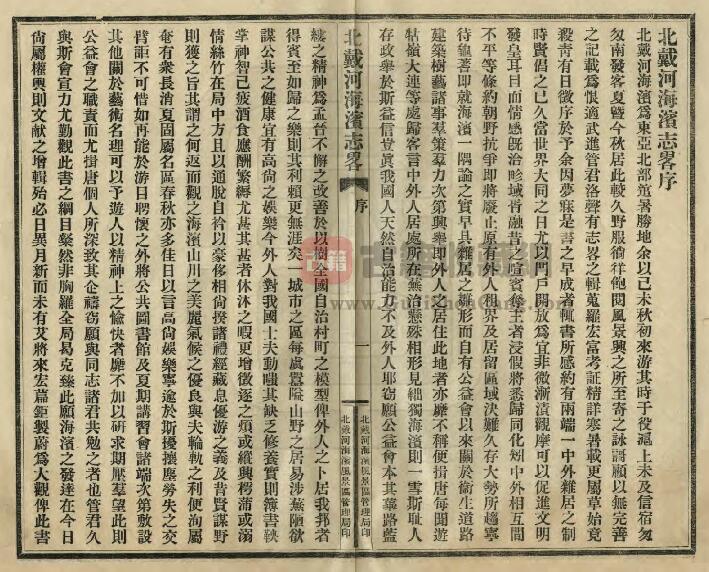 北戴河海濱志畧序
北戴河海濱爲東亞北部避暑勝地余以己未秋初來游其時于役滬上未及信宿匆
匆南發客夏暨今秋居此較久野服徜徉飽閱風景興之所至寄之詠謌顧以無完善
之記載爲恨適武進管君洛聲有志畧之輯蒐羅宏富考証精詳寒暑載更屬草始竟
殺靑有日徵序於予余因夢寐是書之早成者輒書所感約有兩端一中外雜居之制
時賢倡之已久當世界大同之日尤以門戶開放爲宜非微漸漬觀摩可以促進文明
發皇耳目而情感旣洽畛域胥融昔之喧賓奪主者浸假將悉歸同化矧中外相互間
不平等條約朝野抗爭卽將廢止原有外人租界及居留區域決難久存大勢所趨寧
待龜蓍卽就海濱一隅論之實早具雜居之雛形而自有公益會以來關於衞生道路
建築樹藝諸事羣策羣力次第興舉卽外人之居住此地者亦靡不稱便唐每聞遊
牯嶺大連等處歸客言中外人居處所在無治懸殊相形見絀獨海濱則一雪斯恥人
存政舉於斯益信豈眞我國人天然自治能力不及外人耶竊願公益會本其蓽路藍
北戴河海濱志畧
序
一
北戴河海濱風景區管理局印
北戴河海濱風景區管理局印
縷之精神爲孟晉不懈之改善於以樹全國自治村町之模型俾外人之卜居我邦者
得賓至如歸之樂則其利賴更無涯矣一城市之區每虞囂隘山野之居易涉蕪陋欲
謀公共之健康宜有高尙之娛樂今外人對我國士夫動嗤其缺乏修養實則簿書鞅
掌神智已疲酒食應酬繁縟尤甚其甚者休沐之暇更增徵逐之煩或縱興樗蒲或溺
情絲竹在局中方且以通脫自衿以豪侈相尙揆諸禮經藏息優游之義及昔賢謀野
則獲之旨其謂之何返而觀之海濱山川之美麗氣候之優良與夫輪軌之利便洵屬
奄有衆長消夏固屬名區春秋亦多佳日以言高尙娛樂寧逾於斯擾攘塵勞失之交
臂詎不可惜如再能於游目騁懷之外將公共圖書館及夏期講習會諸端次第敷設
其他關於藝術名理可以予遊人以精神上之愉快者靡不加以硏求期壓羣望此則
公益會之職責而尤唐個人所深致其企禱竊願與同志諸君共勉之者也管君久
與斯會宣力尤勤觀此書之綱目粲然非胸羅全局曷克臻此願海濱之發達在今日
尙屬權輿則文獻之增輯殆必日異月新而未有艾將來宏篇鉅製蔚爲大觀俾此書